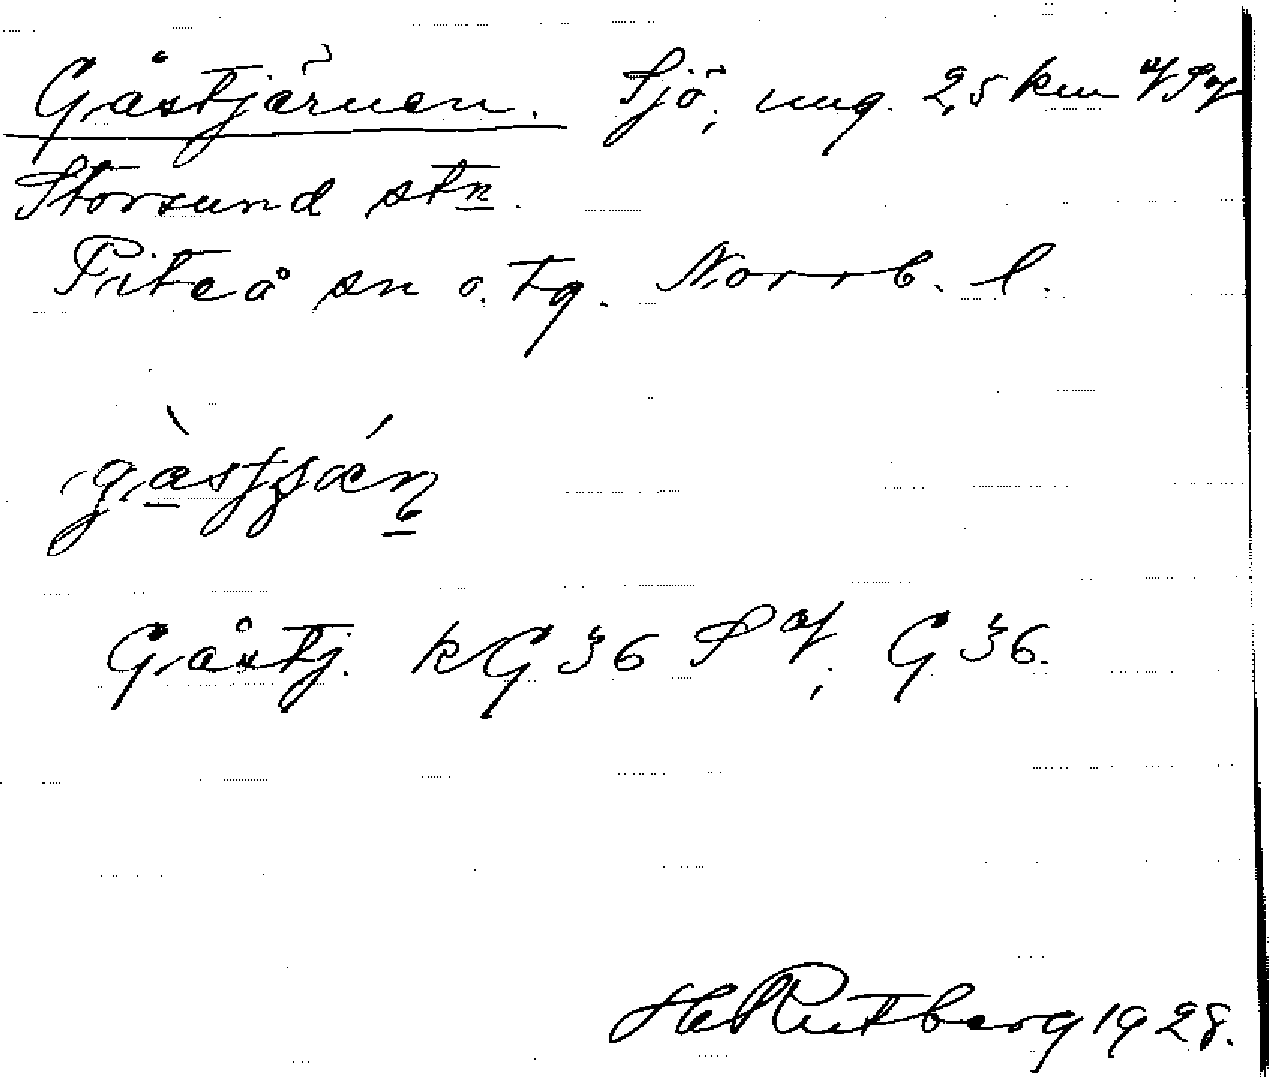 Gåstjärnen. Sjö, ung. 2,5 km
Storsund stn.
Piteå sn o. tg. Norrb. l.
Gåstj. kG36 S af, G36.
H Rutberg 1928.